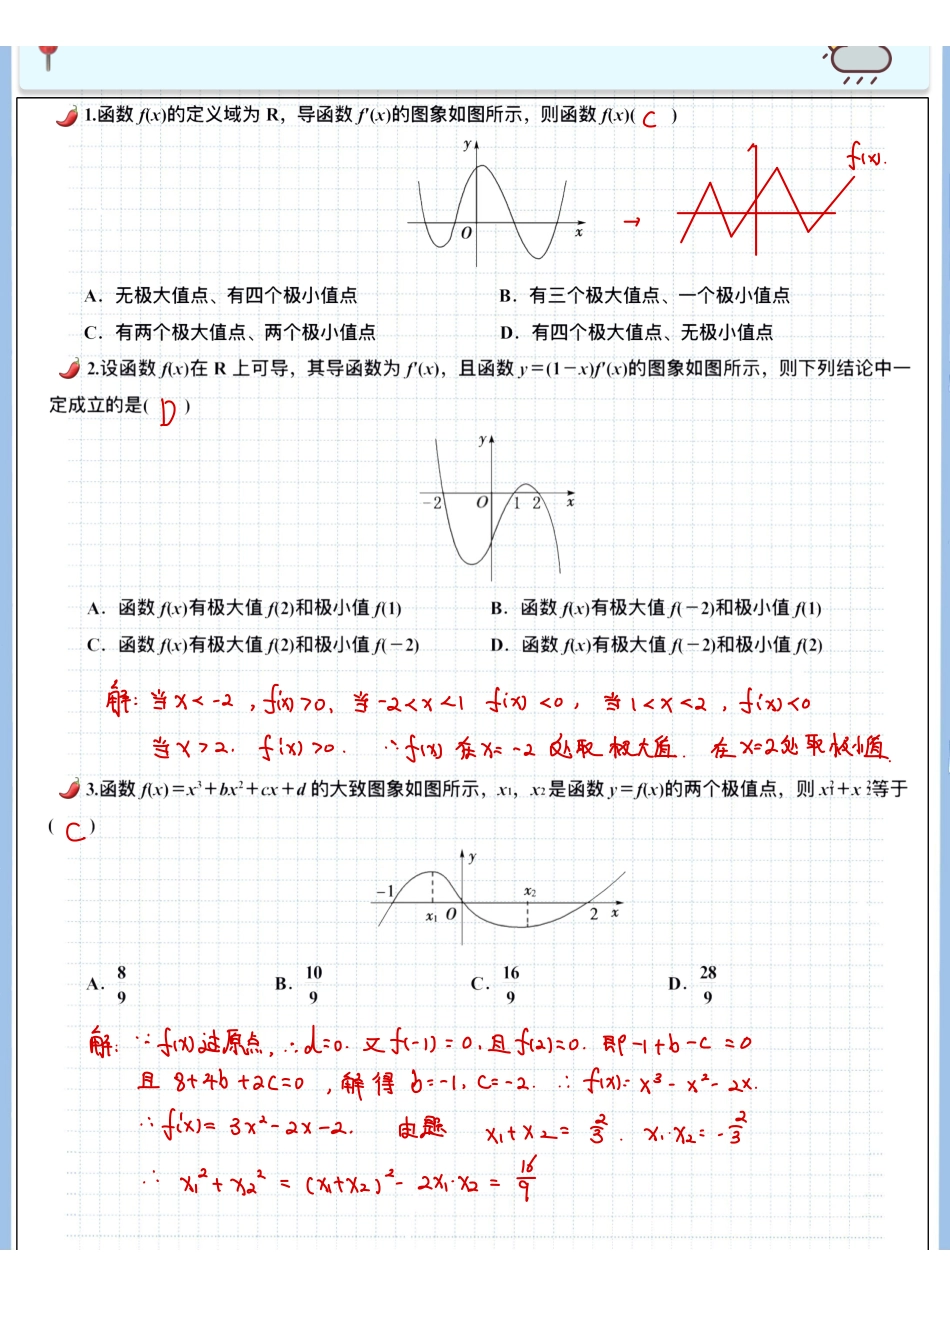 1.函数 f(x)的定义域为 R，导函数 f′(x)的图象如图所示，则函数 f(x)( C )
y
O
x
→
f(x).
A．无极大值点、有四个极小值点
B．有三个极大值点、一个极小值点
C．有两个极大值点、两个极小值点
D．有四个极大值点、无极小值点
2.设函数 f(x)在 R 上可导，其导函数为 f′(x)，且函数 y＝(1－x)f′(x)的图象如图所示，则下列结论中一
定成立的是( D )
y
-2 O 1 2 x
A．函数 f(x)有极大值 f(2)和极小值 f(1)
B．函数 f(x)有极大值 f(－2)和极小值 f(1)
C．函数 f(x)有极大值 f(2)和极小值 f(－2)
D．函数 f(x)有极大值 f(－2)和极小值 f(2)
解: 当 x < -2 , f'(x) >0, 当 -2<x<1 f'(x) <0, 当 1<x<2 , f'(x)<0
当 x>2. f'(x) >0. ∴ f(x) 在 x= -2 处取 极大值. 在 x=2处取极小值.
3.函数 f(x)＝x³＋bx²＋cx＋d 的大致图象如图所示，x₁，x₂ 是函数 y＝f(x)的两个极值点，则 x₁²＋x₂²等于
( C )
y
-1 x₂
x₁ O 2 x
A．8/9
B．10/9
C．16/9
D．28/9
解: ∵ f(x)过原点, ∴d=0. 又 f(-1) = 0, 且 f(2)=0. 即 -1+b-c =0
且 8+4b+2c=0 , 解得 b=-1, c=-2. ∴ f(x)= x³- x²- 2x.
∴ f'(x)= 3x²-2x-2. 由题 x₁+x₂= 2/3. x₁·x₂= -2/3
∴ x₁²+x₂² = (x₁+x₂)²- 2x₁·x₂ = 16/9